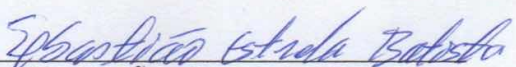 Sebastião Estrela Batista